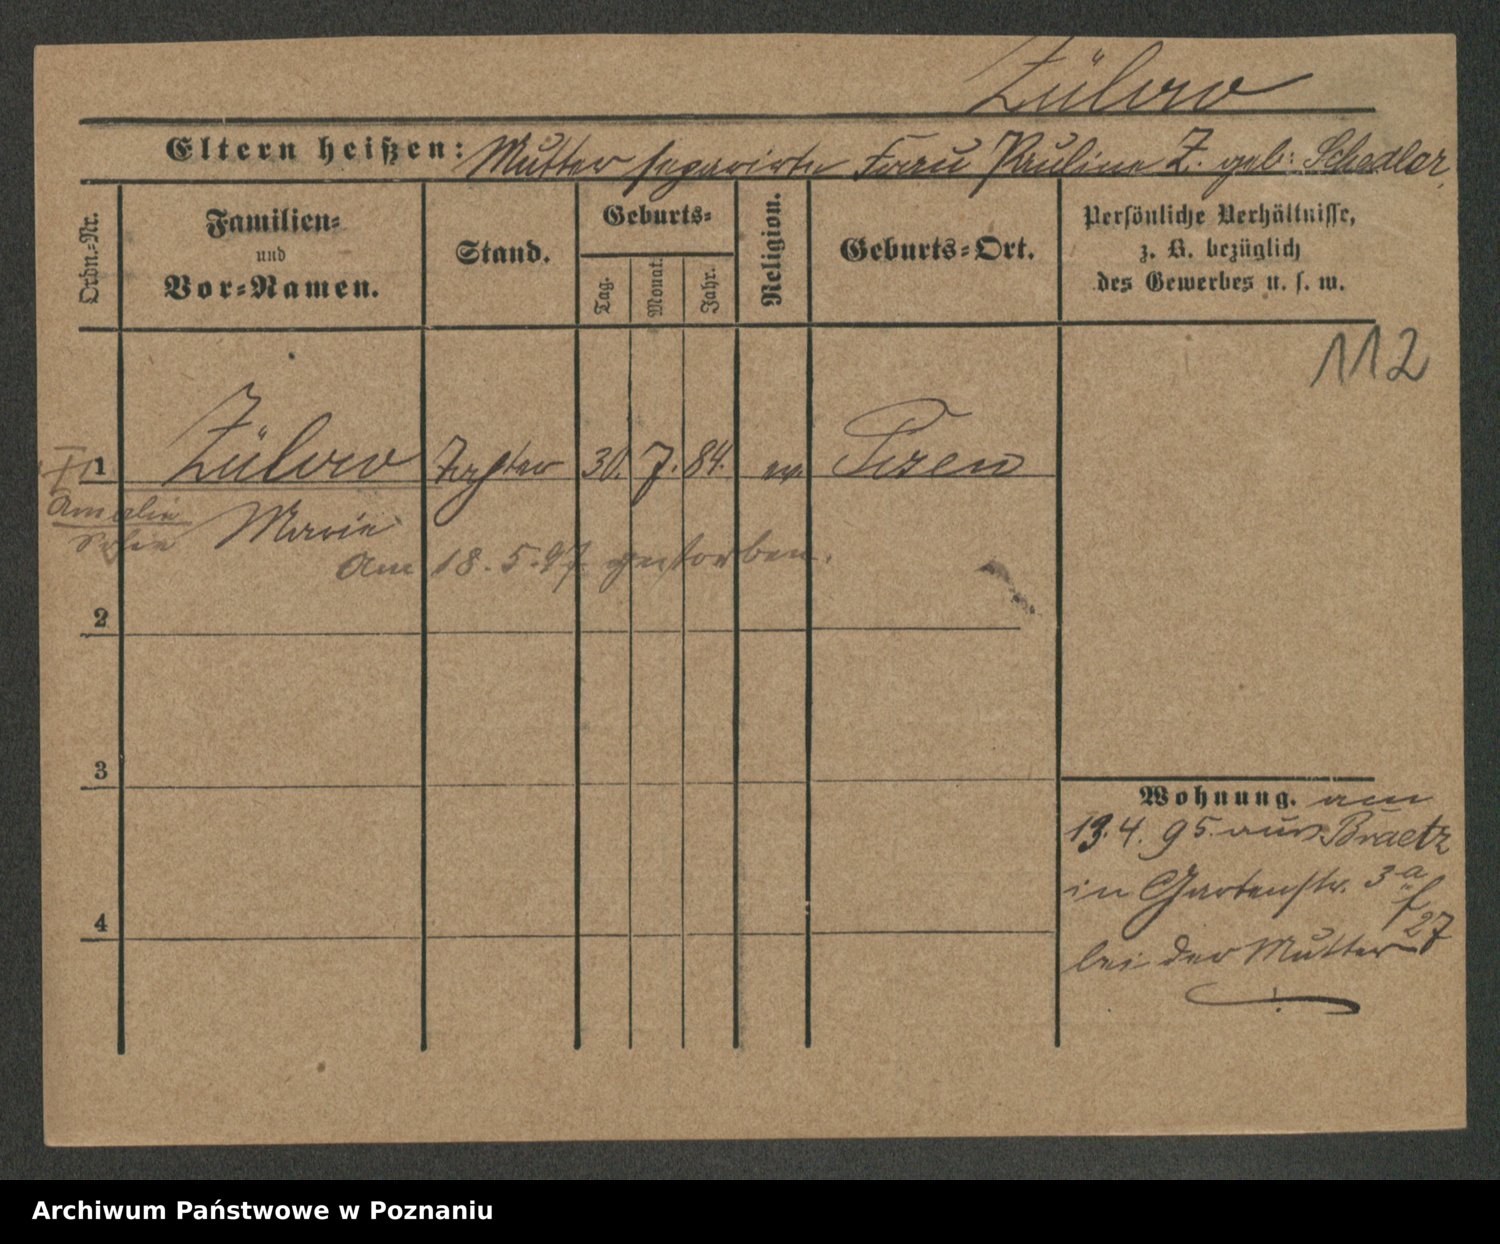 Zülow
Eltern heißen: Mutter separirte Frau Pauline Z. geb: Schedler,
Ordn.-Nr.
Familien-
und
Vor-Namen.
Stand.
Geburts-
Tag.
Monat.
Jahr.
Religion.
Geburts-Ort.
Persönliche Verhältnisse,
z. B. bezüglich
des Gewerbes u. s. w.
112
1 Zülow 30. 7. 84. ev
Amalie
Marie
Am 18. 5. 97 gestorben.
2
3
4
Wohnung. am
13. 4. 95 aus Braetz
in Gartenstr. 3a
27
bei der Mutter
Archiwum Państwowe w Poznaniu